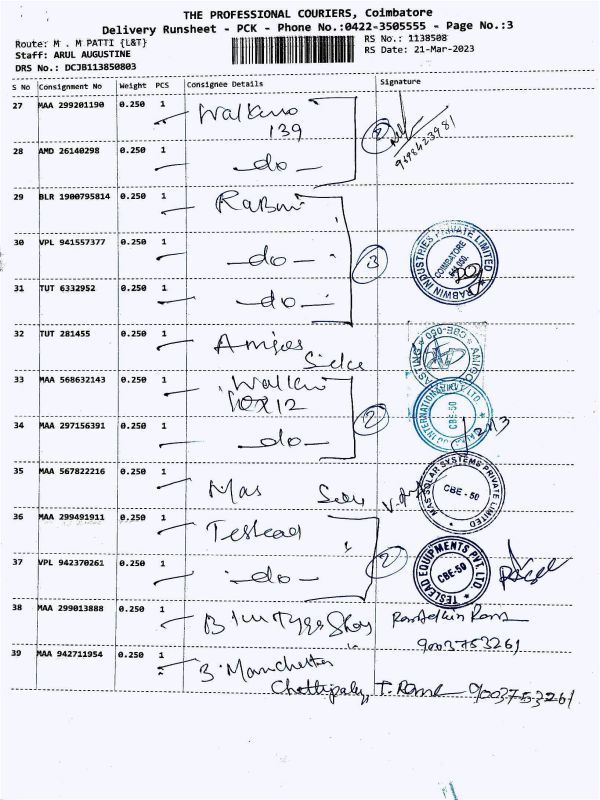 THE PROFESSIONAL COURIERS, Coimbatore
Delivery Runsheet - PCK - Phone No.:0422-3505555 - Page No.:3
Route: M . M PATTI {L&T}
RS No.: 1138508
Staff: ARUL AUGUSTINE
RS Date: 21-Mar-2023
DRS No.: DCJB113850803
S No Consignment No Weight PCS Consignee Details Signature
27 MAA 299201190 0.250 1
139
2
28 AMD 26140298 0.250 1 -do-
29 BLR 1900795814 0.250 1
30 VPL 941557377 0.250 1 -do-
3
RABWIN INDUSTRIES PRIVATE LIMITED
COIMBATORE
31 TUT 6332952 0.250 1 -do-
32 TUT 281455 0.250 1
33 MAA 568632143 0.250 1
2
CBE-50
34 MAA 297156391 0.250 1 -do-
35 MAA 567822216 0.250 1 Mas
MAS SOLAR SYSTEMS PRIVATE LIMITED
CBE - 50
36 MAA 299491911 0.250 1 Teslead
2
37 VPL 942370261 0.250 1 -do-
TESLEAD EQUIPMENTS PVT. LTD.
CBE-50
38 MAA 299013888 0.250 1
9003753261
39 MAA 942711954 0.250 1
9003753261